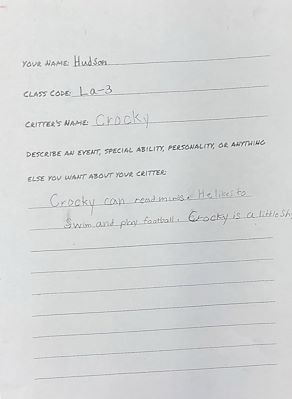 YOUR NAME: Hudson
CLASS CODE: La-3
CRITTER'S NAME: Crocky
DESCRIBE AN EVENT, SPECIAL ABILITY, PERSONALITY, OR ANYTHING
ELSE YOU WANT ABOUT YOUR CRITTER:
Crocky can read minds. He likes to
Swim and play football. Crocky is a little sh